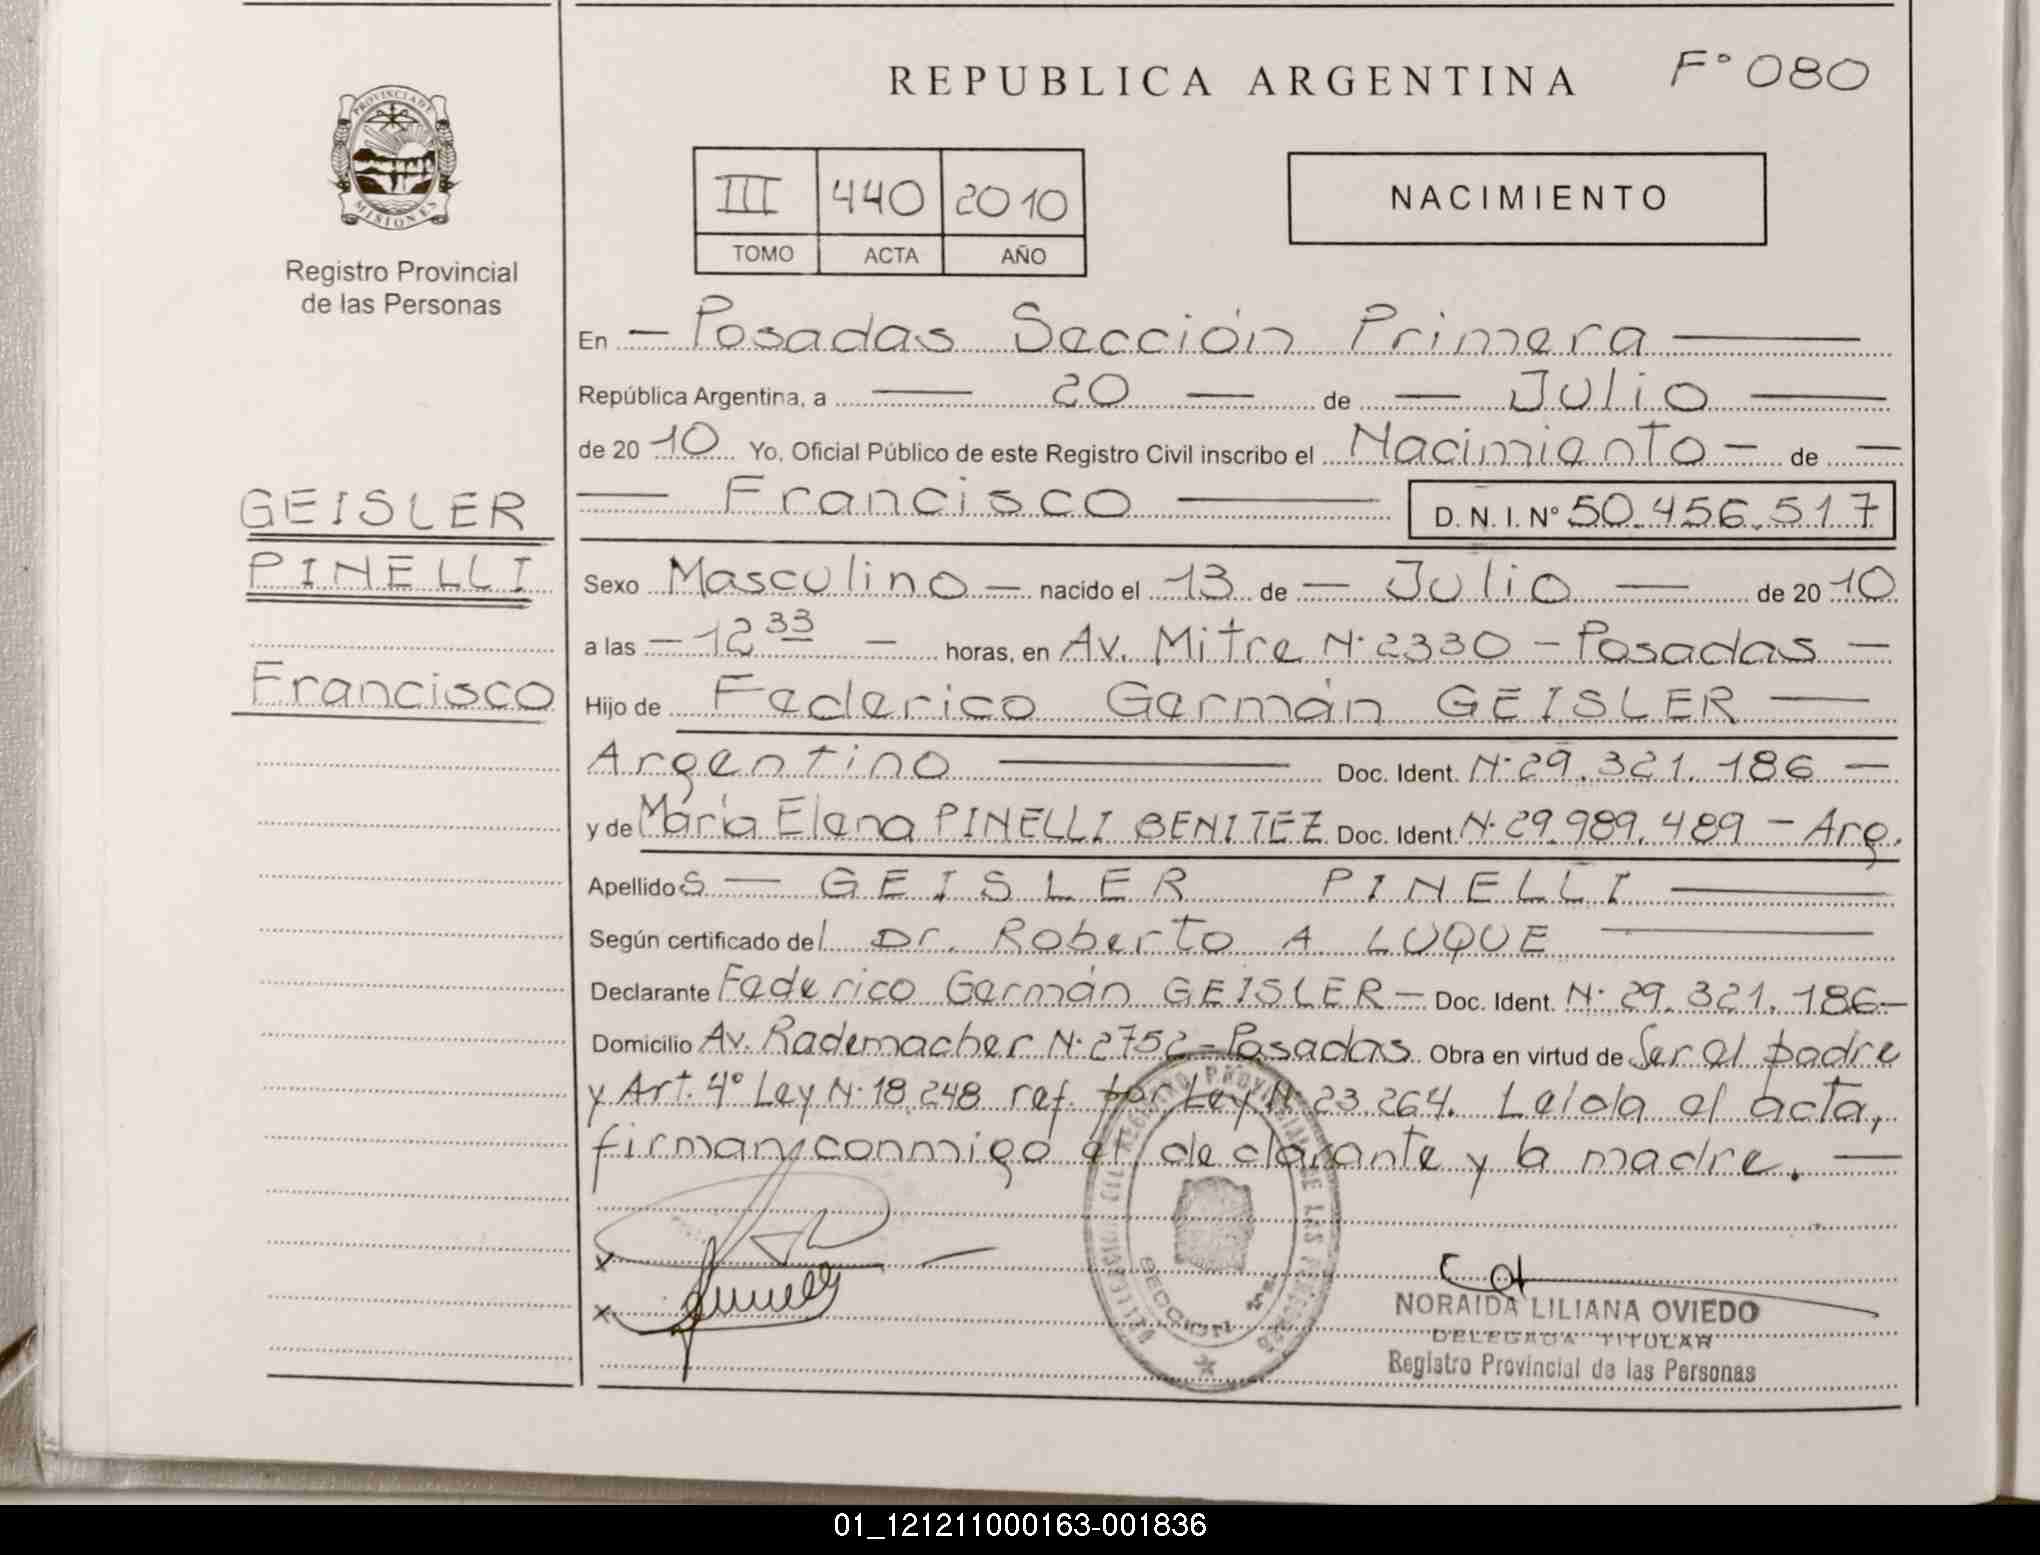 REPUBLICA ARGENTINA F° 080
PROVINCIA DE
MISIONES
Registro Provincial
de las Personas
III 440 2010
TOMO ACTA AÑO
NACIMIENTO
En — Posadas Sección Primera —
República Argentina, a — 20 — de — Julio —
de 2010 Yo, Oficial Público de este Registro Civil inscribo el Nacimiento — de —
— Francisco — D. N. I. N° 50.456.517
GEISLER
PINELLI
Francisco
Sexo Masculino — nacido el 13 de — Julio — de 2010
a las — 12 33 — horas, en Av. Mitre N· 2330 — Posadas —
Hijo de Federico Germán GEISLER —
Argentino — Doc. Ident. N· 29.321.186 —
y de María Elena PINELLI BENITEZ Doc. Ident. N· 29.989.489 — Arg.
Apellidos — GEISLER PINELLI —
Según certificado del Dr. Roberto A LUQUE —
Declarante Federico Germán GEISLER — Doc. Ident. N· 29.321.186 —
Domicilio Av. Rademacher N· 2752 - Posadas Obra en virtud de Ser el padre
y Art. 4° Ley N· 18.248 ref. por Ley N· 23.264. Leida el acta,
firman conmigo el declarante y la madre. —
REGISTRO PROVINCIAL DE LAS PERSONAS
SECCION
NORAIDA LILIANA OVIEDO
DELEGADA TITULAR
Registro Provincial de las Personas
01_121211000163-001836